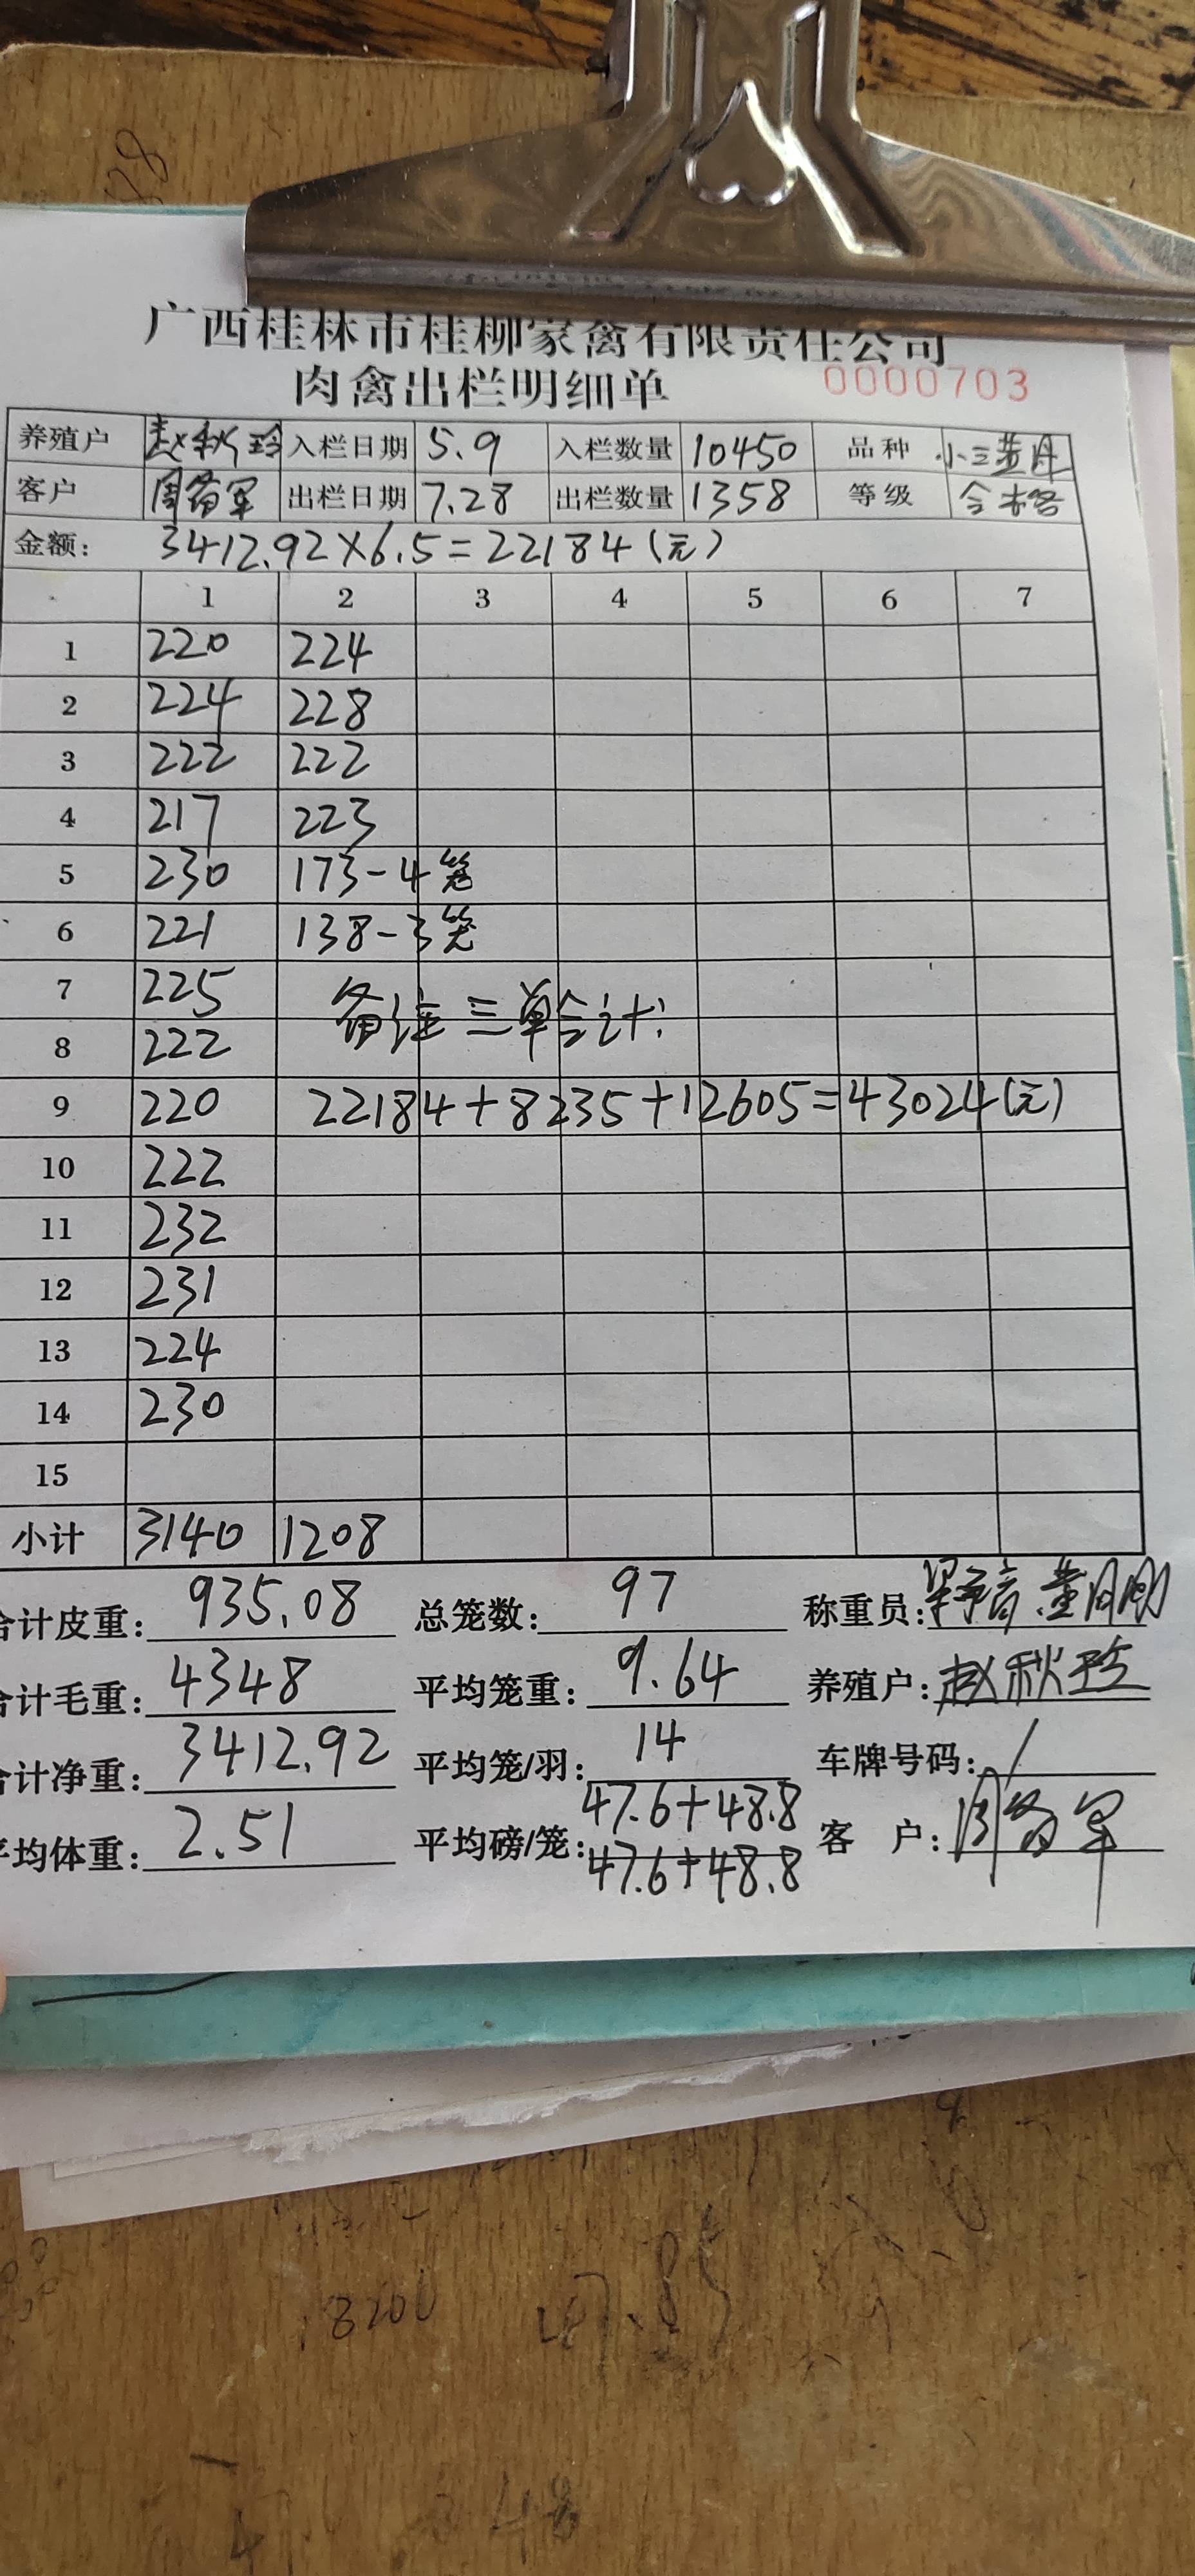 广西桂林市桂柳家禽有限责任公司
肉禽出栏明细单 0000703
养殖户 赵秋玲 入栏日期 5.9 入栏数量 10450 品种
客户 周备军 出栏日期 7.28 出栏数量 1358 等级 合格
金额: 3412.92×6.5=22184(元)
1 2 3 4 5 6 7
1 220 224
2 224 228
3 222 222
4 217 223
5 230 173-4笼
6 221 138-3笼
7 225
备注三单合计:
8 222
9 220 22184+8235+12605=43024(元)
10 222
11 232
12 231
13 224
14 230
15
小计 3140 1208
合计皮重: 935.08 总笼数: 97 称重员:
合计毛重: 4348 平均笼重: 9.64 养殖户: 赵秋玲
合计净重: 3412.92 平均笼/羽: 14 车牌号码: /
平均体重: 2.51 平均磅/笼: 47.6+48.8 客户: 周备军
47.6+48.8